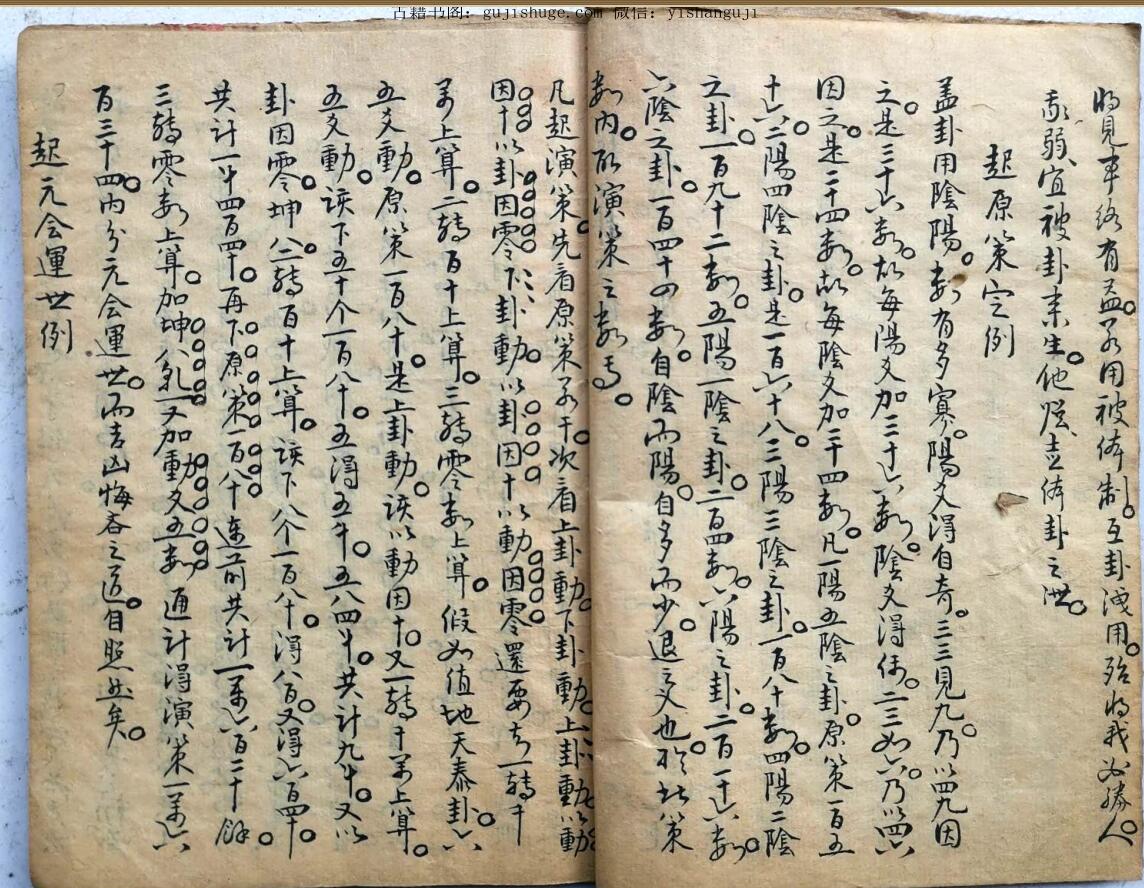 古籍书图：gujishuge.com 微信：yishanguji
将見事終有益若用被体制互卦洩用殆将我必勝人
我弱宜被卦來生他脱立体卦之洩
起原策定例
盖卦用陰陽数有多寡陽爻得自奇三三見九乃以四九因
之是三十六数故每陽爻加三十六数陰爻得偶二三如六乃以四六
因之是二十四数故每陰爻加二十四数凡一陽五陰之卦原策一百五
十六二陽四陰之卦是一百六十八三陽三陰之卦一百八十数四陽二陰
之卦一百九十二数五陽一陰之卦二百四数六陽之卦二百一十六数
六陰之卦一百四十四数自陰而陽自多而少退之义也於此策
数内取演策之数焉
凡起演策先看原策若干次看上卦動下卦動上卦動以動
因十以卦因零下卦動以卦因十以動因零還要知一轉千
萬上算二轉百十上算三轉零数上算假如值地天泰卦六
五爻動原策一百八十是上卦動該以動因十又一轉千萬上算
五爻動該下五十个一百八十五得五千五八四千共計九千又以
卦因零坤八二轉百十上算該下八个一百八十得八百又得六百四十
共計一千四百四十再下原策一百八十連前共計一萬六百二十餘
三轉零数上算加坤八乾一又加動爻五数通計得演策一萬六
百三十四内分元会運世而吉凶悔吝之道自照然矣
起元会運世例